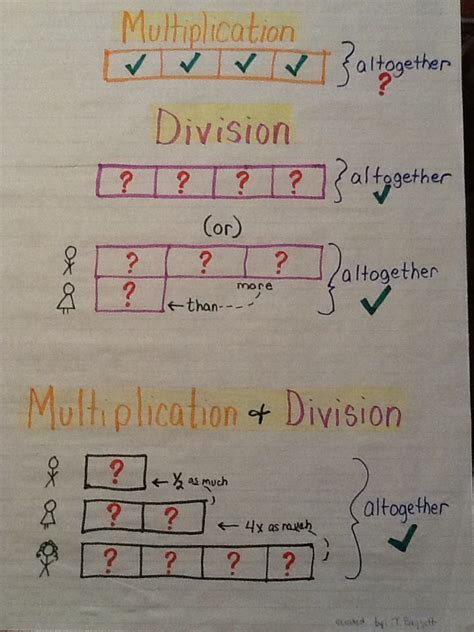 Multiplication
✓ ✓ ✓ ✓ } altogether
?
Division
? ? ? ? } altogether
✓
(or)
? ? ?
more
? ←than---- } altogether
✓
Multiplication + Division
? ← ½ as much
? ? ← 4x as much
? ? ? ? } altogether
✓
created by: T. Baggett